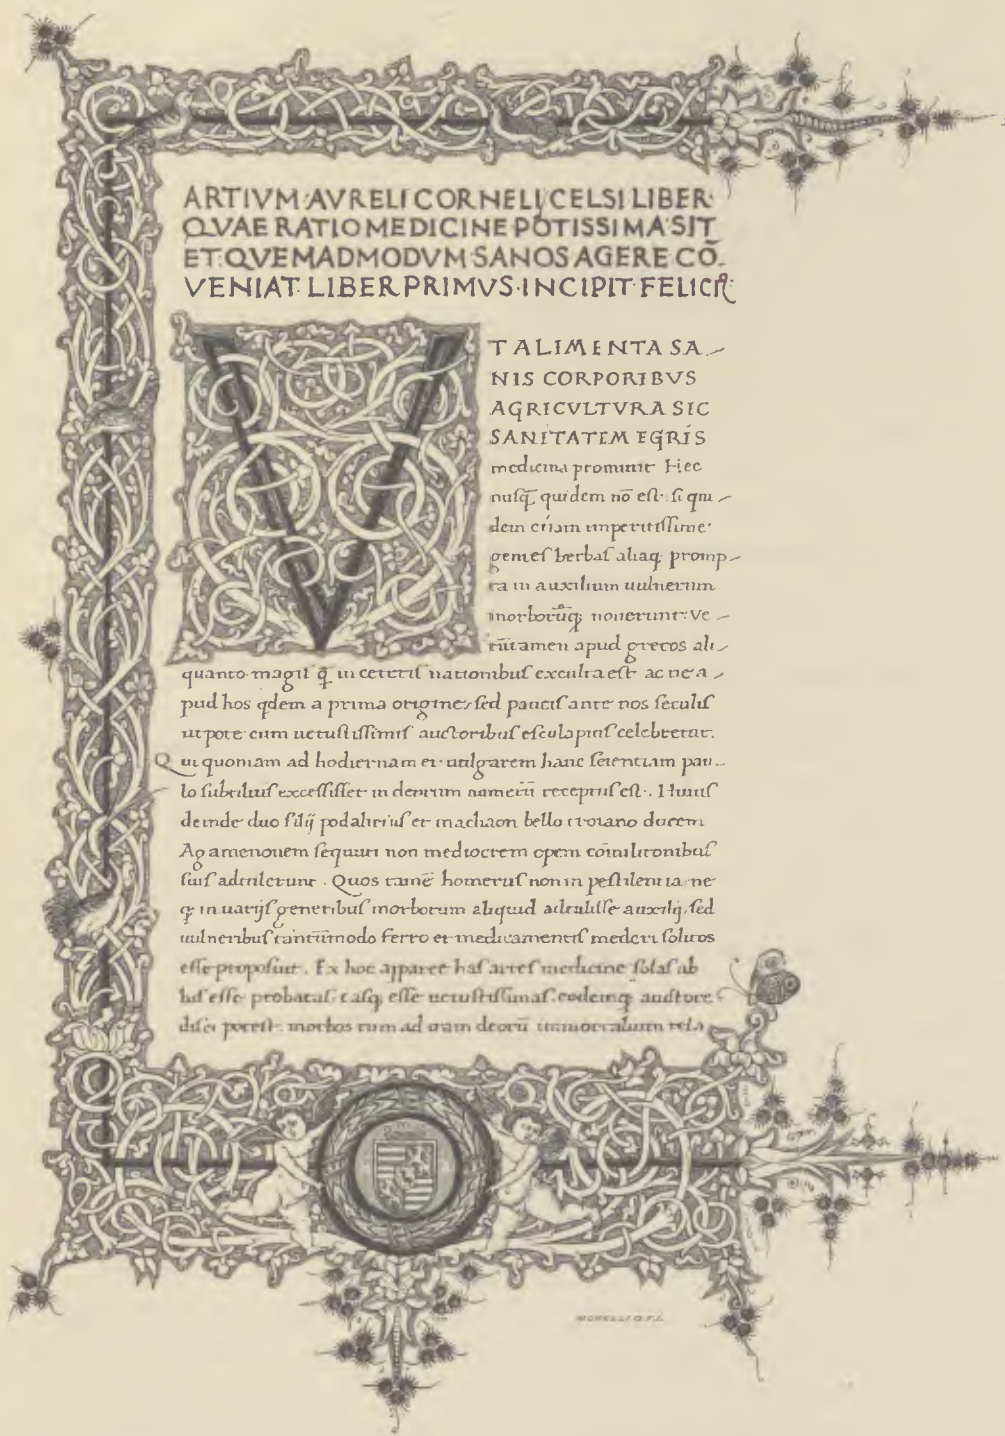 ARTIVM·AVRELI CORNELIJ CELSI LIBER·
QVAE RATIO MEDICINE POTISSIMA·SIT
ET·QVEMADMODVM·SANOS AGERE CŌ-
VENIAT· LIBER PRIMVS·INCIPIT·FELICIT̃:
VT ALIMENTA SA-
NIS CORPORIBVS
AGRICVLTVRA SIC
SANITATEM EGRIS
medicina promittit Hec
nusq̄ quidem nō est·: si qui-
dem etiam imperitissime·
gentes herbas aliaq; promp-
ta in auxilium uulnerum
morborūq; nouerunt: Ve-
rūtamen apud grecos ali-
quanto·magis q̄ in ceteris nationibus exculta est ac ne a-
pud hos qdem a prima origine, sed paucis ante nos seculis
utpote cum uetustissimis auctoribus esculapius celebretur.
Qui quoniam ad hodiernam et uulgarem hanc scientiam pau-
lo subtilius excessisset in deorum numerū receptus est·. Huius
deinde duo filij podalirius et machaon bello troiano ducem
Agamenonem sequuti non mediocrem opem cōmilitonibus
suis adtulerunt. Quos tamē homerus non in pestilentia ne
q; in uarijs generibus morborum aliquid adtulisse auxilij, sed
uulneribus tantūmodo ferro et medicamentis mederi solitos
esse proposuit. Ex hoc apparet has artes medicine solas ab
his esse probatas: easq; esse uetustissimas. eodemq; auctore
disci potest. morbos tum ad iram deorū immortalium rela
MORELLI G.F.L.